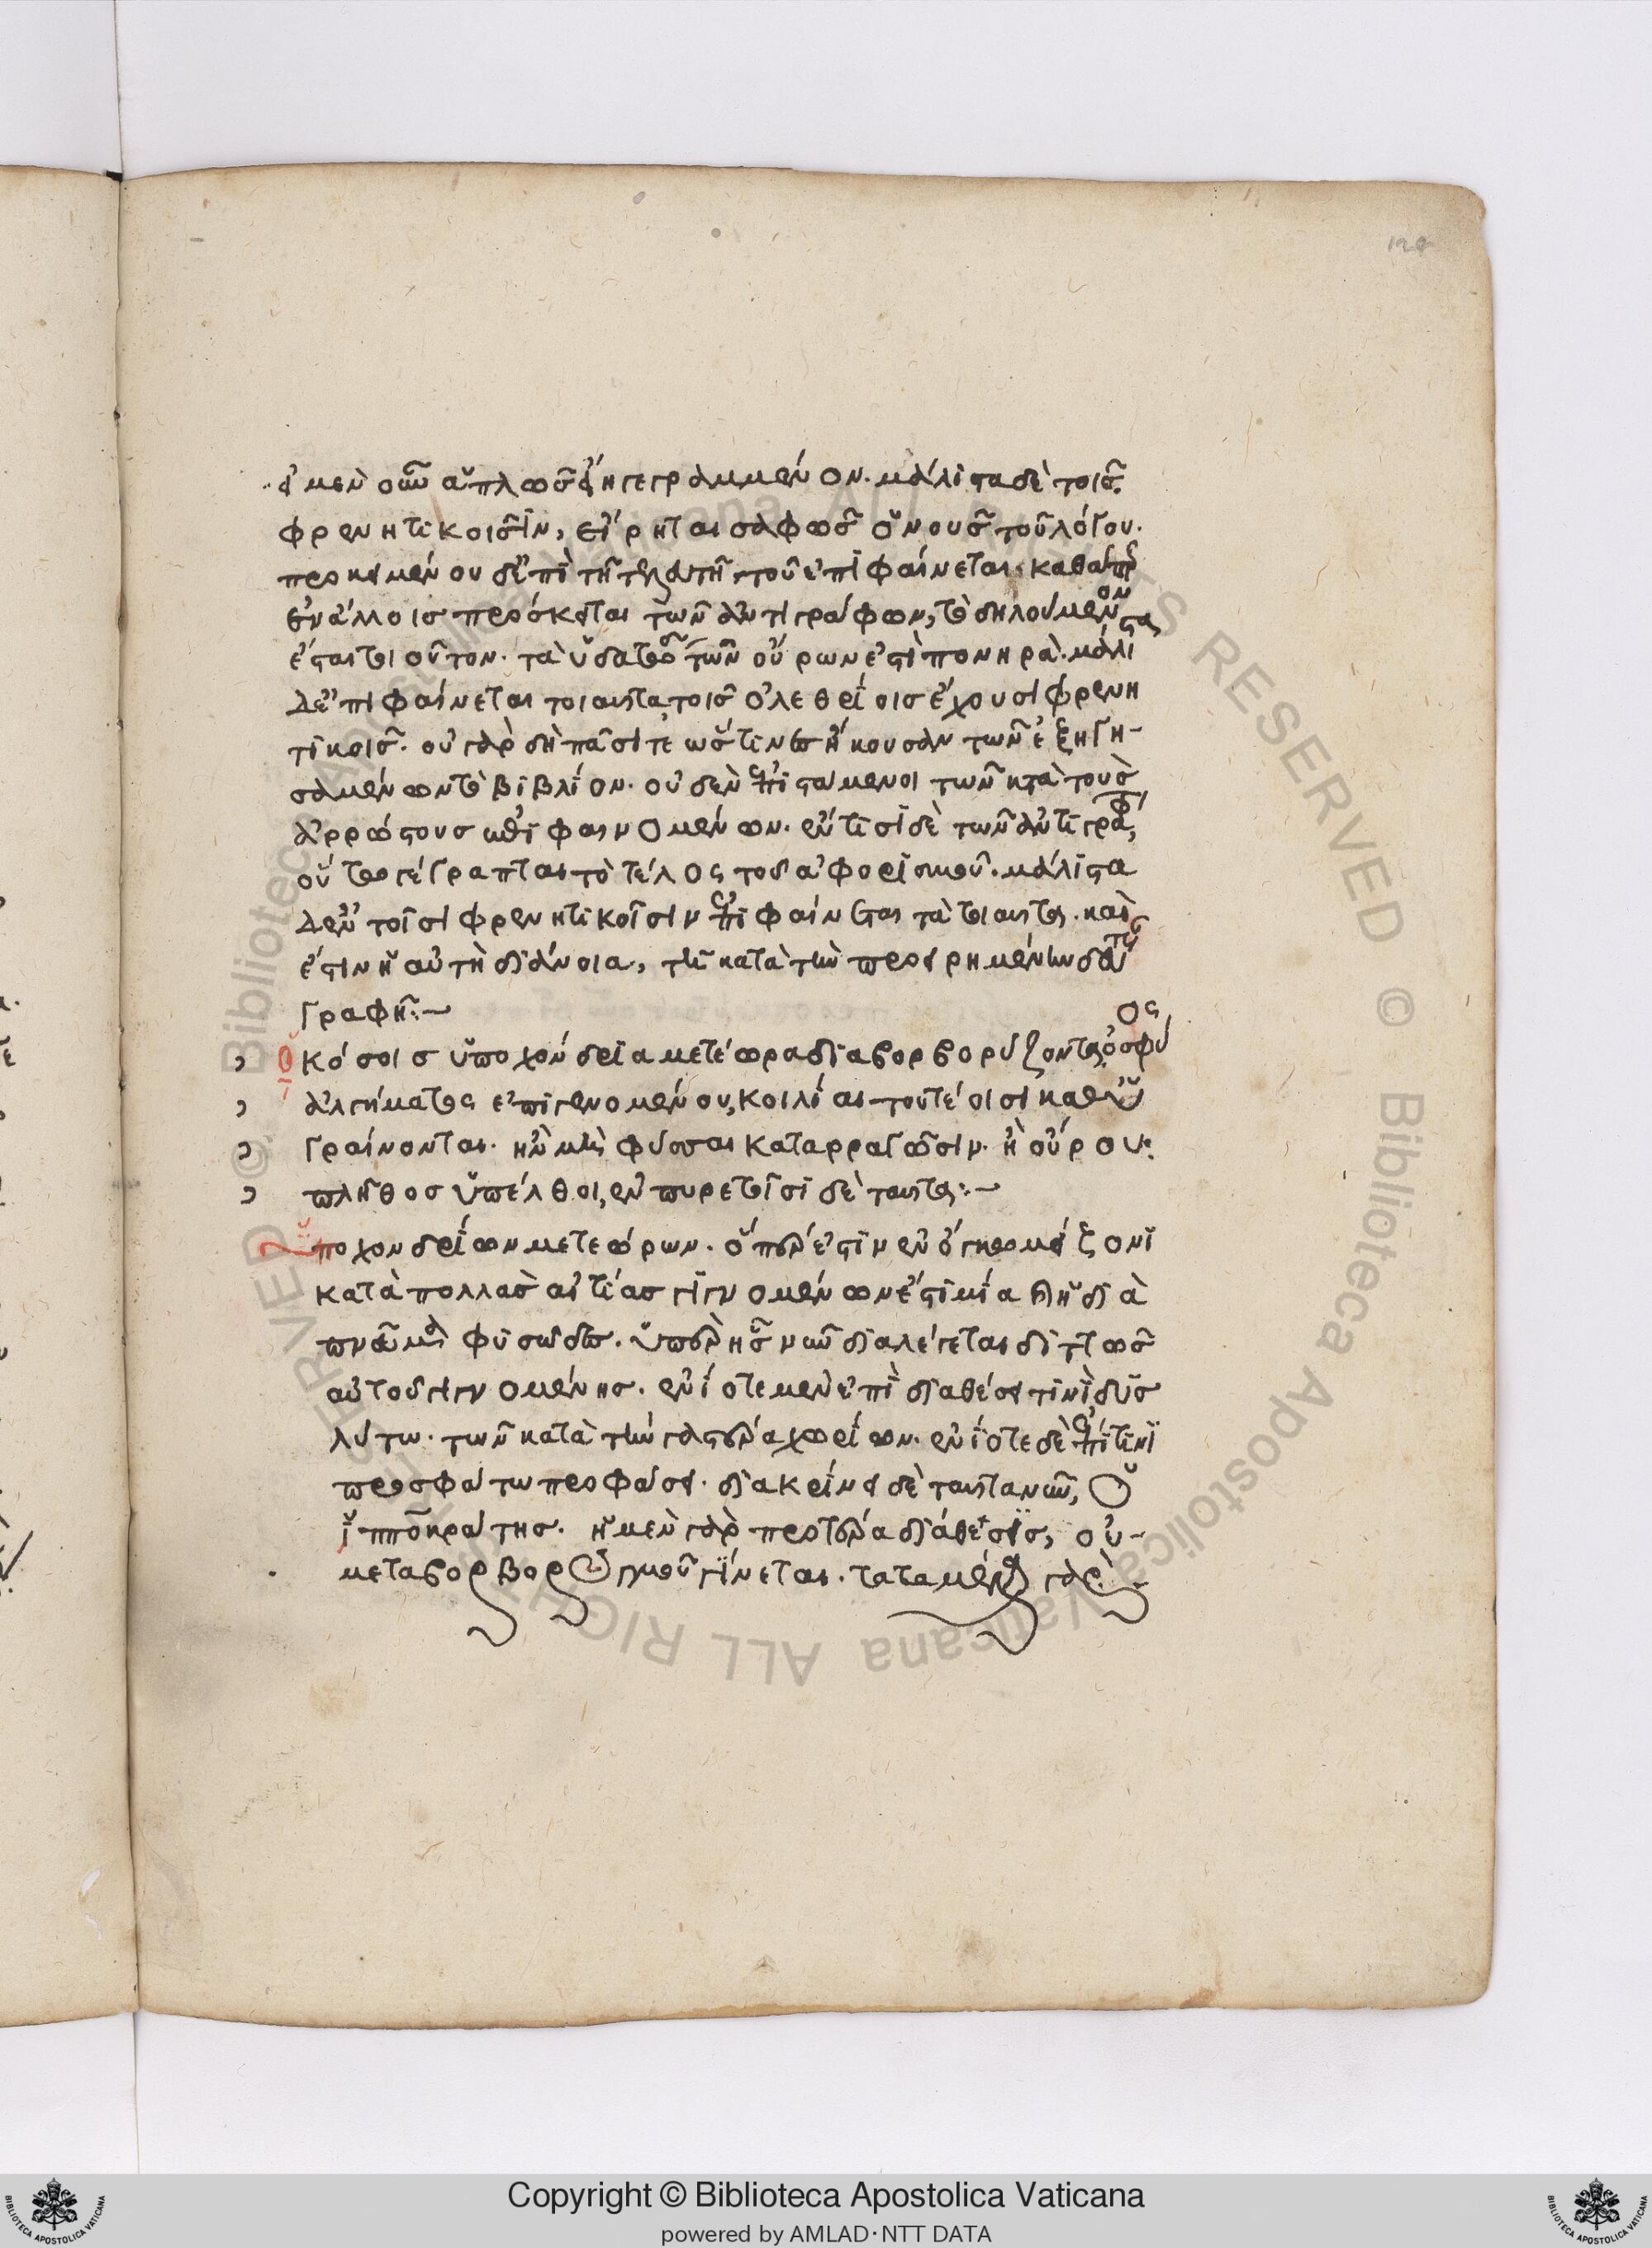 εἰ μὲν οὖν ἁπλῶς εἴη γεγραμμένον. μάλιστα δὲ τοῖς
φρενητικοῖσιν, εἴρηται σαφῶς ὁ νοῦς τοῦ λόγου.
προκειμένου δ' ἐπὶ τῇ τελευτῇ τοῦ ἐπιφαίνεται. καθάπερ
ἐν ἄλλοις πρόσκειται τῶν ἀντιγράφων, τὸ δηλούμενον
ἔσται τοιοῦτον. τὰ ὑδατώδη τῶν οὔρων ἐστὶ πονηρά. μάλιστα
δ' ἐπιφαίνεται τοιαῦτα τοῖς ὀλεθρίοις ἔχουσι φρενη
τικοῖς. οὐ γὰρ δὴ πᾶσί γε ὥς τινες ἤκουσαν τῶν ἐξηγη-
σαμένων τὸ βιβλίον. οὐδὲν ἐπιστάμενοι τῶν κατὰ τοὺς
ἀρρώστους ἐπιφαινομένων. ἐν τισὶ δὲ τῶν ἀντιγράφ,
οὕτω γέγραπται τὸ τέλος τοῦ ἀφορισμοῦ. μάλιστα
δ' ἐν τοῖσι φρενητικοῖσιν ἐπιφαίνεται τὰ τοιαῦτα. καὶ
ἔστιν ἡ αὐτὴ διάνοια, τῇ κατὰ τὴν προειρημένην δευτέραν
γραφῇ:~
Ὁκόσοισ ὑποχόνδρια μετέωρα διαβορβορύζοντα, ὀσφύος
ἀλγήματος ἐπιγενομένου, κοιλίαι τουτέοισι καθυ
γραίνονται. ἢν μὴ φύσαι καταρραγῶσιν. ἢ οὔρου
πλῆθος ὑπέλθοι, ἐν πυρετοῖσι δὲ ταῦτα:~
Ὑποχονδρίων μετεώρων. ὅπερ ἐστὶν ἐν ὄγκῳ μείζονι
κατὰ πολλὰς αἰτίας γινομένων ἔστι μία ἡ διὰ
πνεῦμα φυσῶδες. ὑπὲρ ἧς νῦν διαλέγεται διττῶς
αὐτοῦ γινομένης. ἐνίοτε μὲν ἐπὶ διαθέσει τινὶ δυσ
λύτῳ. τῶν κατὰ τὴν γαστέρα χωρίων. ἐνίοτε δὲ ἐπί τινι
προσφάτῳ προφάσει. διακρίνει δὲ ταῦτα νῦν, ὁ
ἱπποκράτης. ἡ μὲν γὰρ προτέρα διάθεσις, οὐ-
μετὰ βορβορυγμοῦ γίνεται. τεταμένα γὰρ